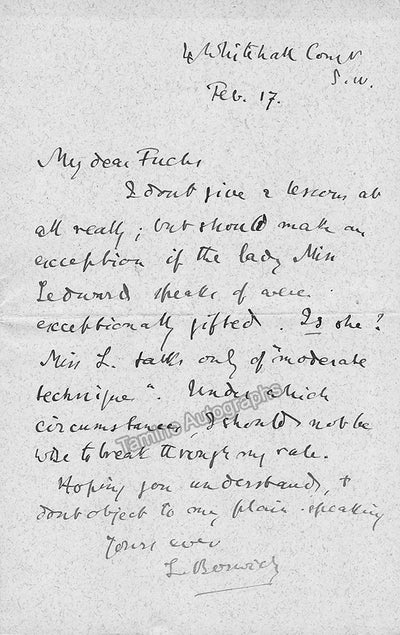 4 Whitehall Court
S.W.
Feb. 17.
My dear Fuchs
I dont give a lessons at
all really; but should make an
exception if the lady Miss
Ledward speaks of were
exceptionally gifted. Is she?
Miss L. talks only of "moderate
technique". Under which
circumstances, I should not be
wise to break through my rule.
Hoping you understand, &
dont object to my plain-speaking
Yours ever
L Borwick
Tamino Autographs